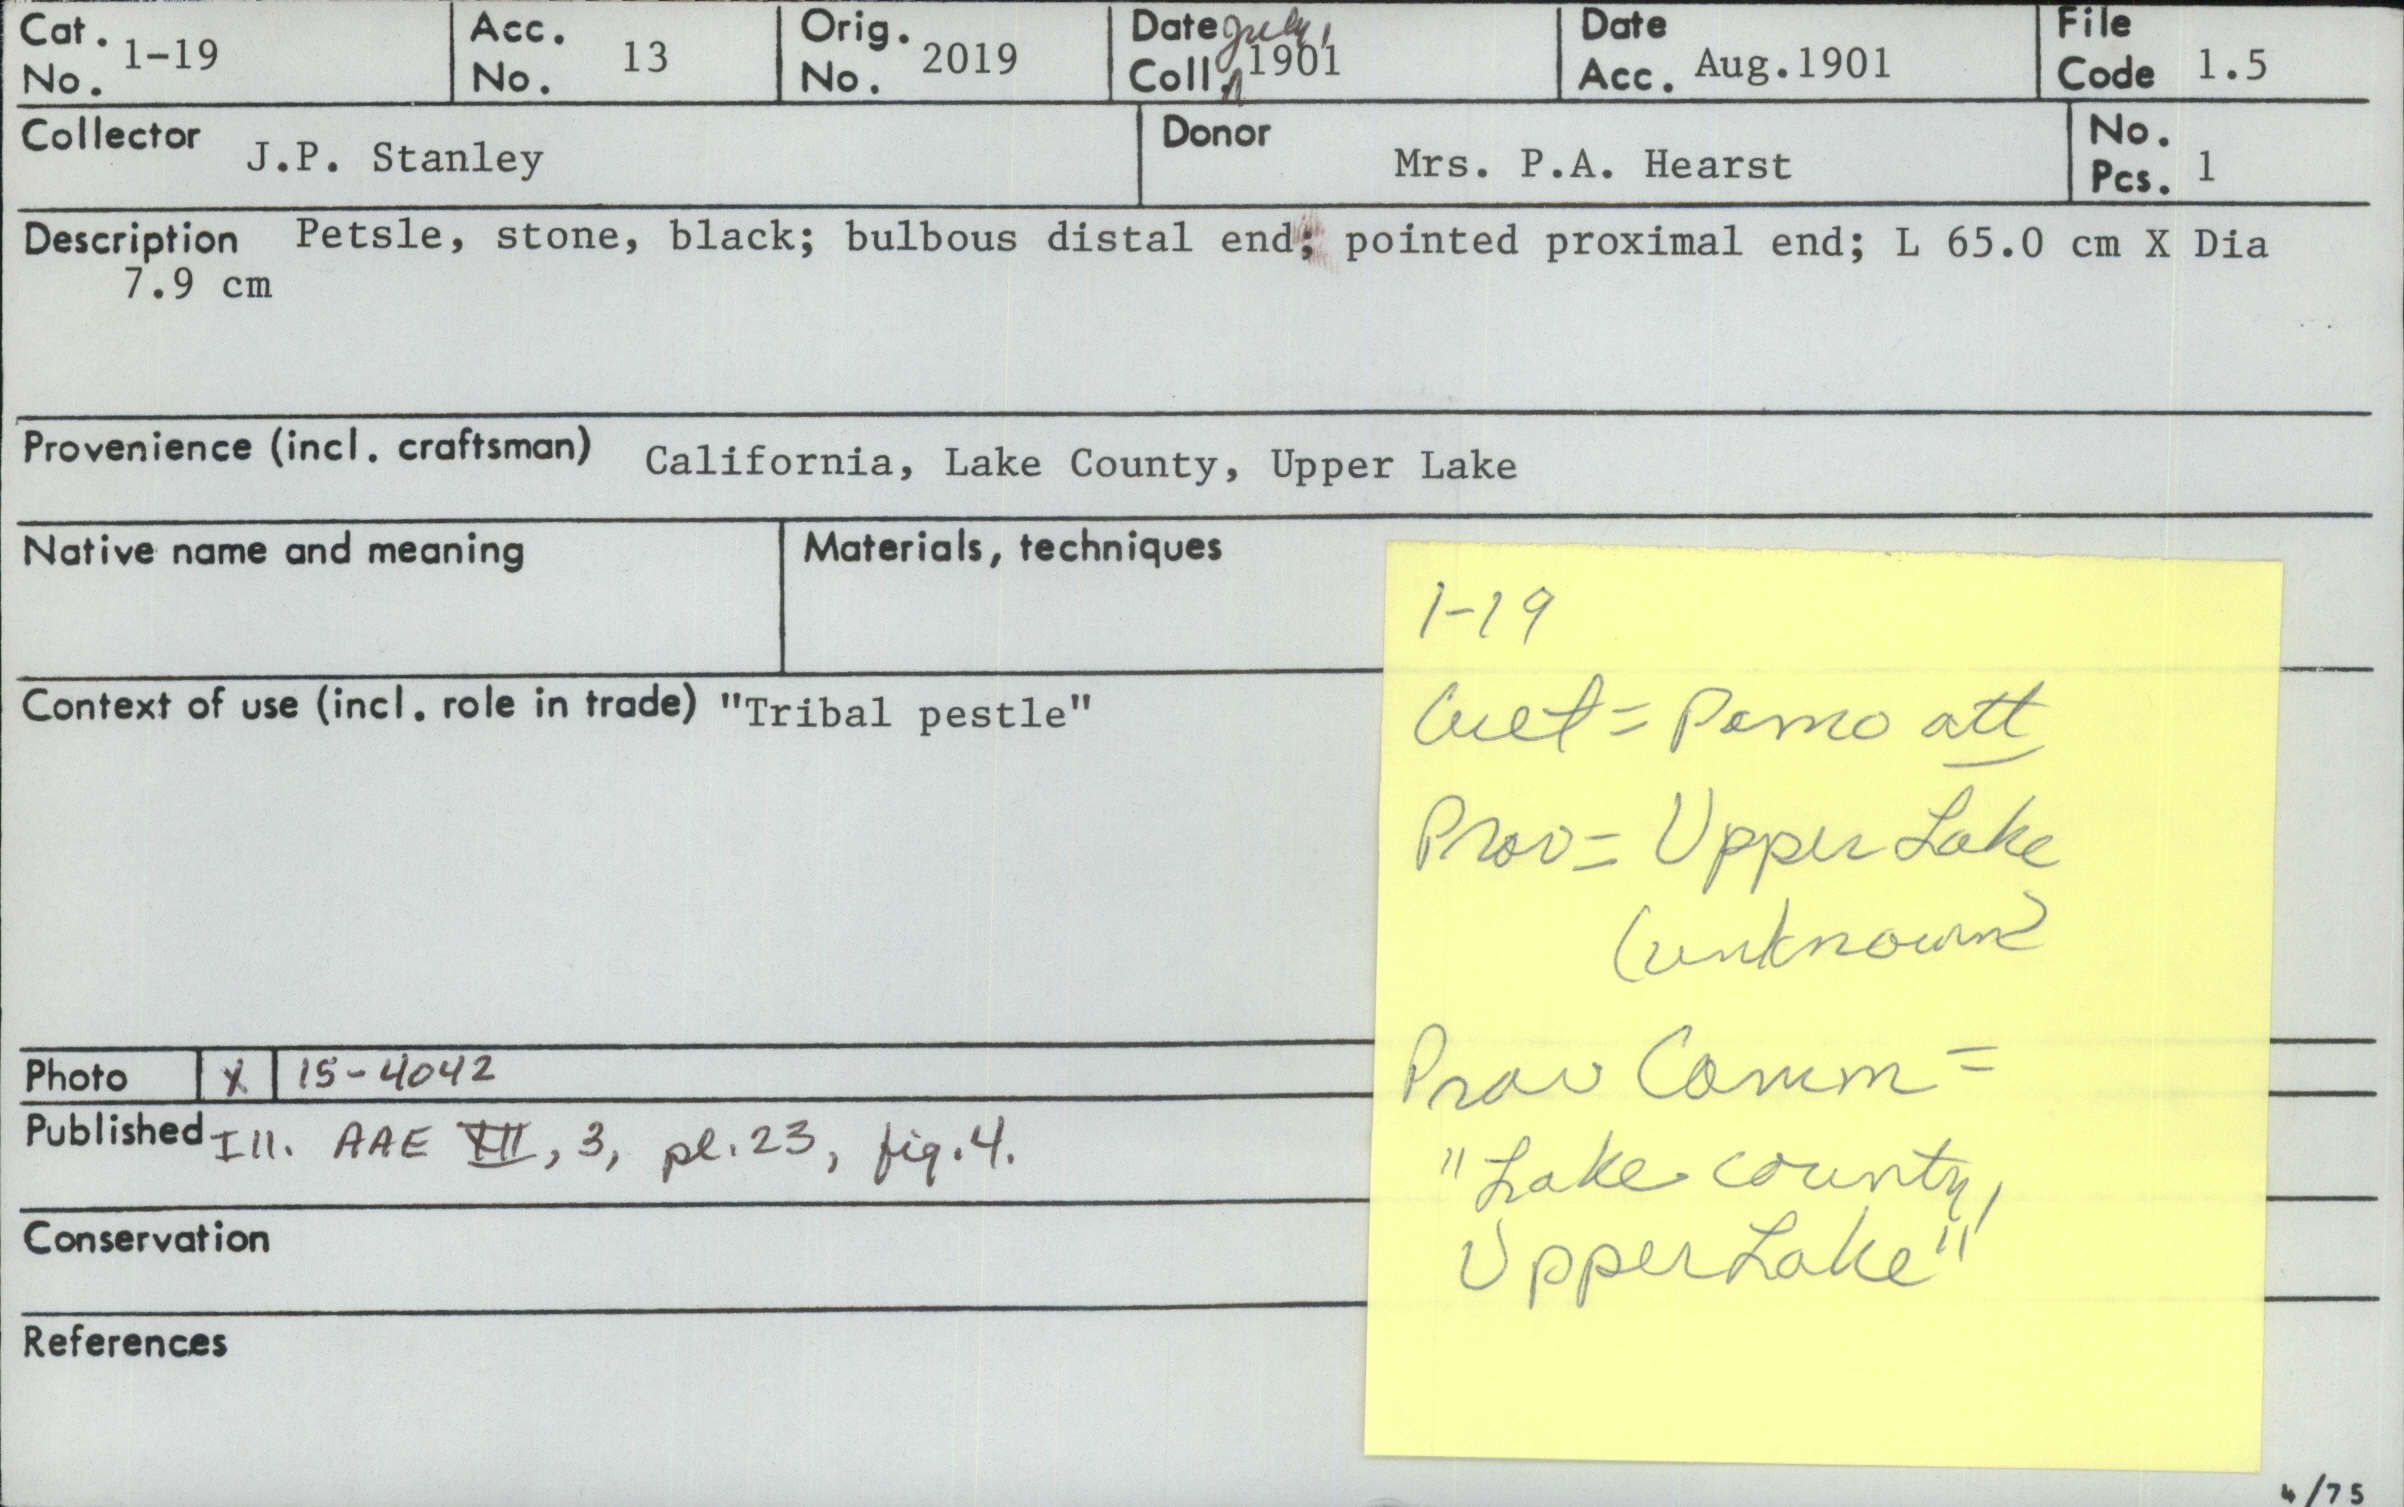 Cat. No. 1-19
Acc. No. 13
Orig. No. 2019
Date Coll. July, 1901
Date Acc. Aug.1901
File Code 1.5
Collector J.P. Stanley
Donor Mrs. P.A. Hearst
No. Pcs. 1
Description Petsle, stone, black; bulbous distal end; pointed proximal end; L 65.0 cm X Dia
7.9 cm
Provenience (incl. craftsman) California, Lake County, Upper Lake
Native name and meaning
Materials, techniques
Context of use (incl. role in trade) "Tribal pestle"
Photo X 15-4042
Published Ill. AAE XII, 3, pl. 23, fig. 4.
Conservation
References
1-19
Cult = Pomo att
Prov = Upper Lake
(unknown)
Prov Comm =
"Lake county,
Upper Lake"
4/75